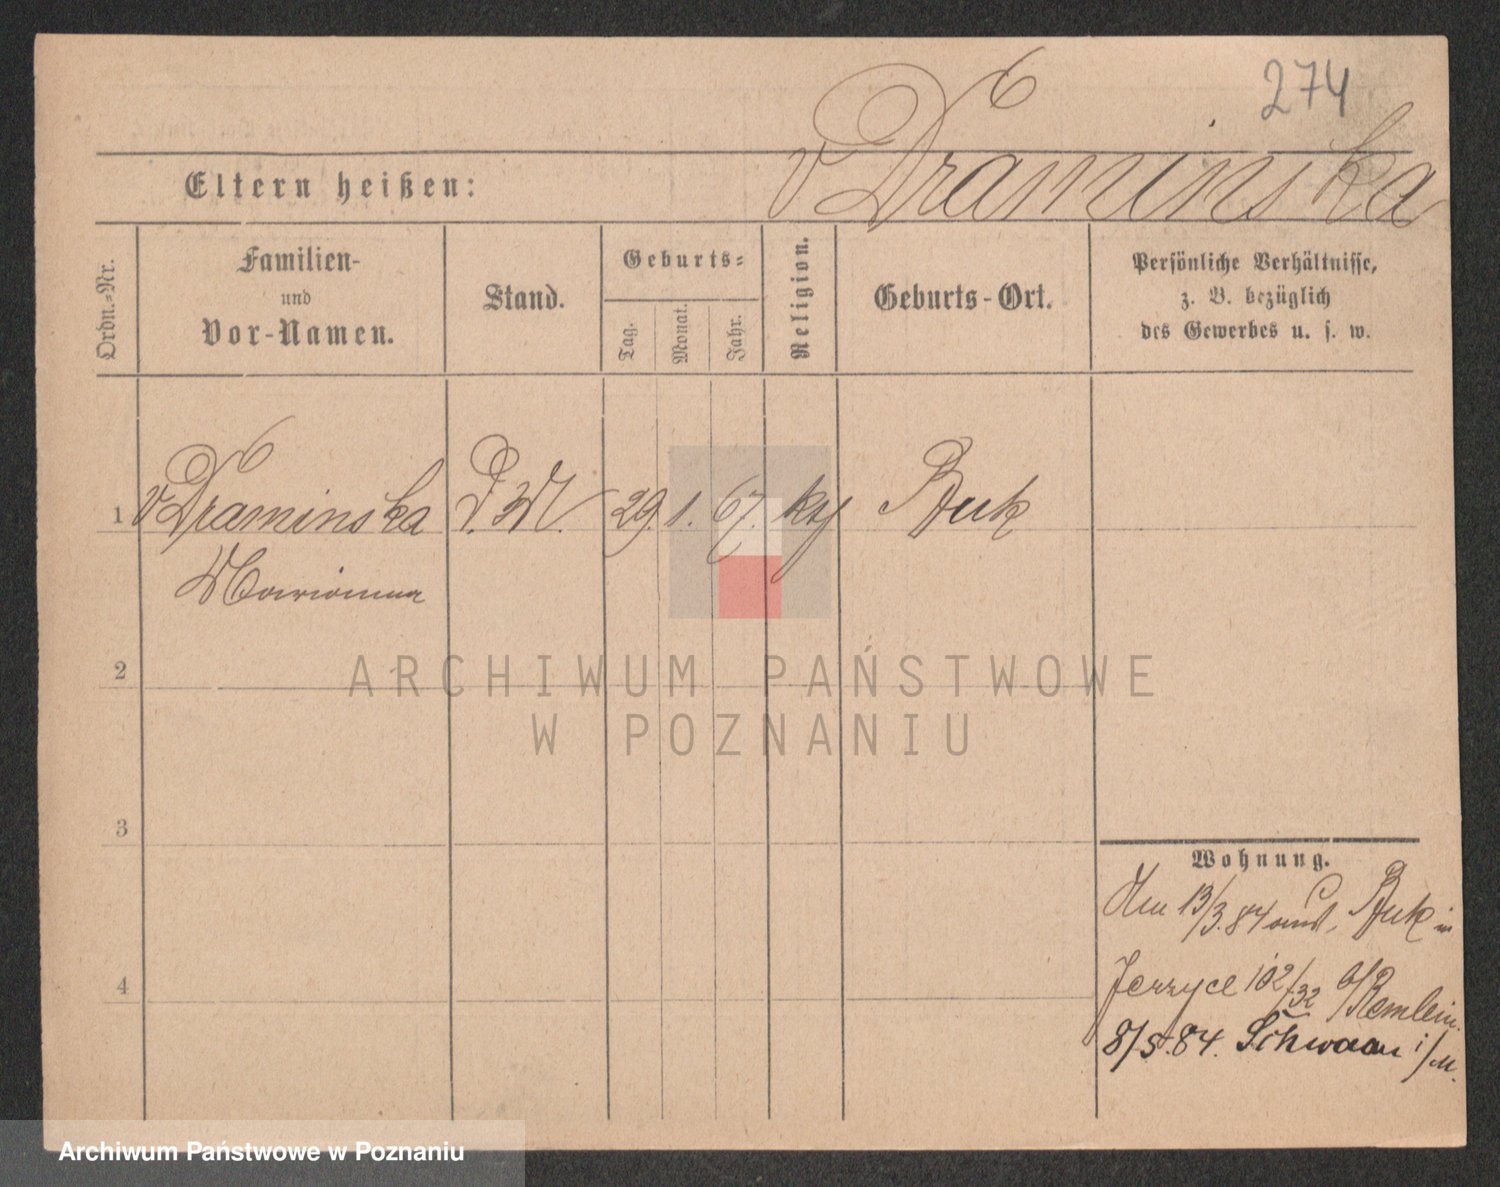 274
v Draminska
Eltern heißen:
Ordn.=Nr.
Familien-
und
Vor-Namen.
Stand.
Geburts=
Tag.
Monat.
Jahr.
Religion.
Geburts-Ort.
Persönliche Verhältnisse,
z. B. bezüglich
des Gewerbes u. s. w.
1 v Draminska D. M. 29. 1. 67. Buk
Marianna
2
3
4
Wohnung.
Am 13/3. 84 Buk in
Jerzyce 102/32
8/5. 84. Schwaan i/M.
ARCHIWUM PAŃSTWOWE
W POZNANIU
Archiwum Państwowe w Poznaniu